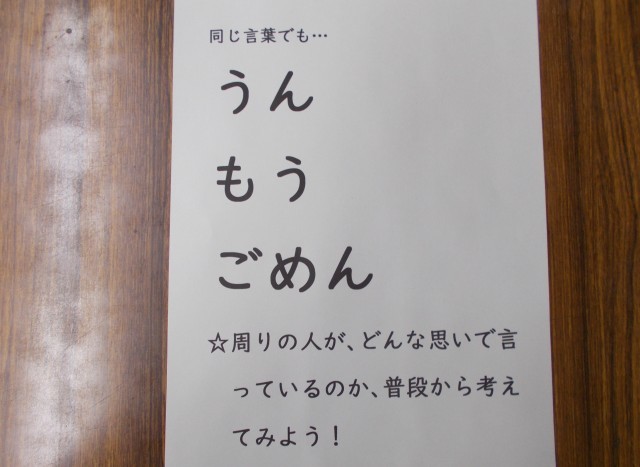 同じ言葉でも…
うん
もう
ごめん
☆周りの人が、どんな思いで言
っているのか、普段から考え
てみよう！